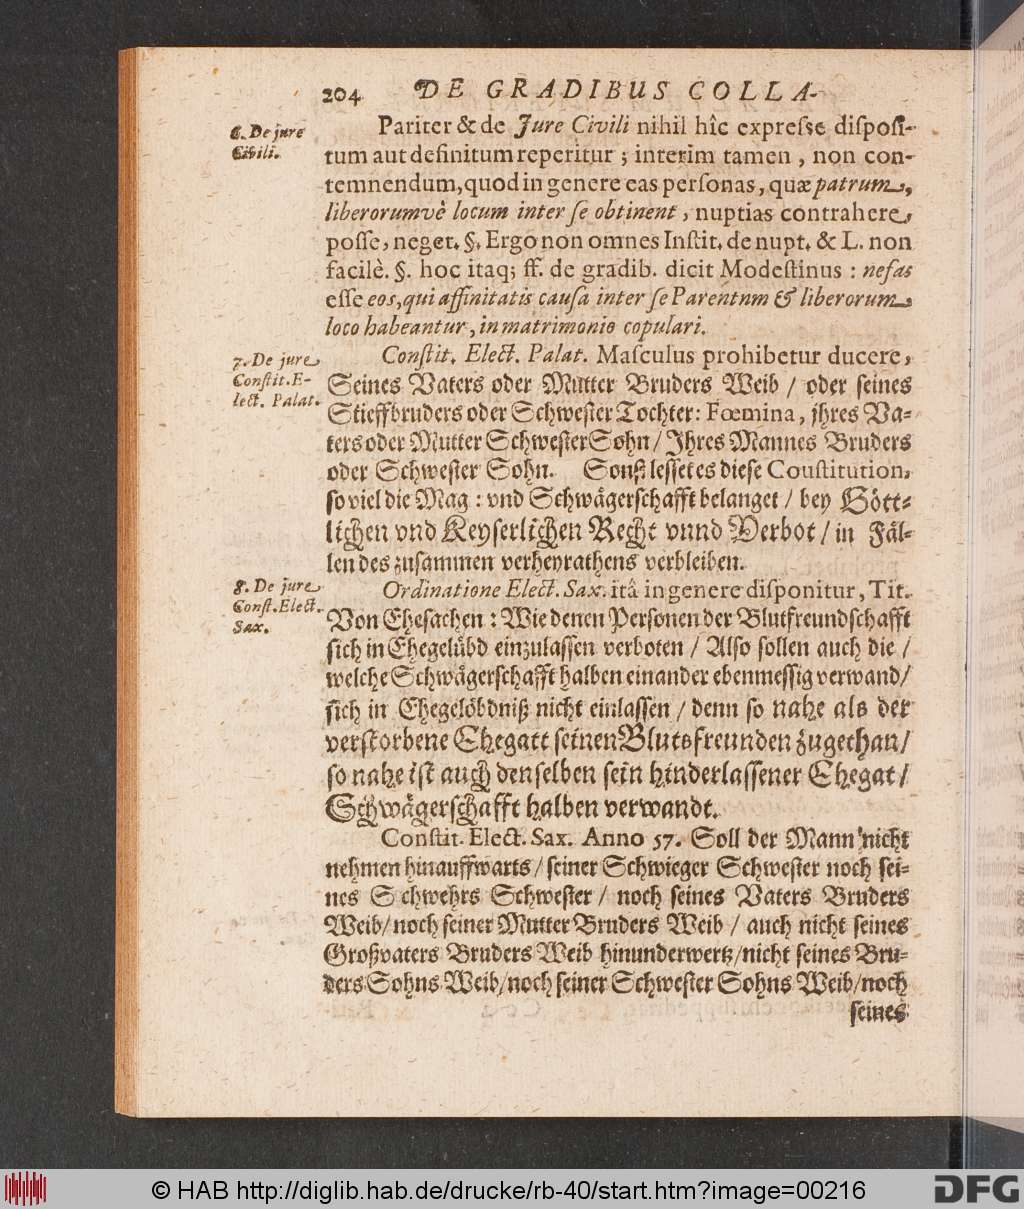 204 DE GRADIBUS COLLA-
6. De jure
Civili.
Pariter & de Jure Civili nihil hîc expresse disposi-
tum aut definitum reperitur; interim tamen, non con-
temnendum, quod in genere eas personas, quæ patrum,
liberorumvè locum inter se obtinent, nuptias contrahere,
posse, neget. §. Ergo non omnes Instit. de nupt. & L. non
facilè. §. hoc itaq; ff. de gradib. dicit Modestinus: nefas
esse eos, qui affinitatis causa inter se Parentnm & liberorum
loco habeantur, in matrimonio copulari.
7. De jure
Constit. E-
lect. Palat.
Constit. Elect. Palat. Masculus prohibetur ducere,
Seines Vaters oder Mutter Bruders Weib / oder seines
Stieffbruders oder Schwester Tochter: Fœmina, jhres Va-
ters oder Mutter Schwester Sohn / Jhres Mannes Bruders
oder Schwester Sohn. Sonst lesset es diese Coustitution,
so viel die Mag: vnd Schwägerschafft belanget / bey Gött-
lichen vnd Keyserlichen Recht vnnd Verbot / in Fäl-
len des zusammen verheyrathens verbleiben.
8. De jure
Const. Elect.
Sax.
Ordinatione Elect. Sax. itâ in genere disponitur, Tit.
Von Ehesachen: Wie denen Personen der Blutfreundschafft
sich in Ehegelübd einzulassen verboten / Also sollen auch die /
welche Schwägerschafft halben einander ebenmessig verwand /
sich in Ehegelöbdniß nicht einlassen / denn so nahe als der
verstorbene Ehegatt seinen Blutsfreunden zugethan /
so nahe ist auch denselben sein hinderlassener Ehegat /
Schwägerschafft halben verwandt.
Constit. Elect. Sax. Anno 57. Soll der Mann nicht
nehmen hinauffwarts / seiner Schwieger Schwester noch sei-
nes Schwehrs Schwester / noch seines Vaters Bruders
Weib / noch seiner Mutter Bruders Weib / auch nicht seines
Großvaters Bruders Weib hinunderwertz / nicht seines Bru-
ders Sohns Weib / noch seiner Schwester Sohns Weib / noch
seines
© HAB http://diglib.hab.de/drucke/rb-40/start.htm?image=00216
DFG